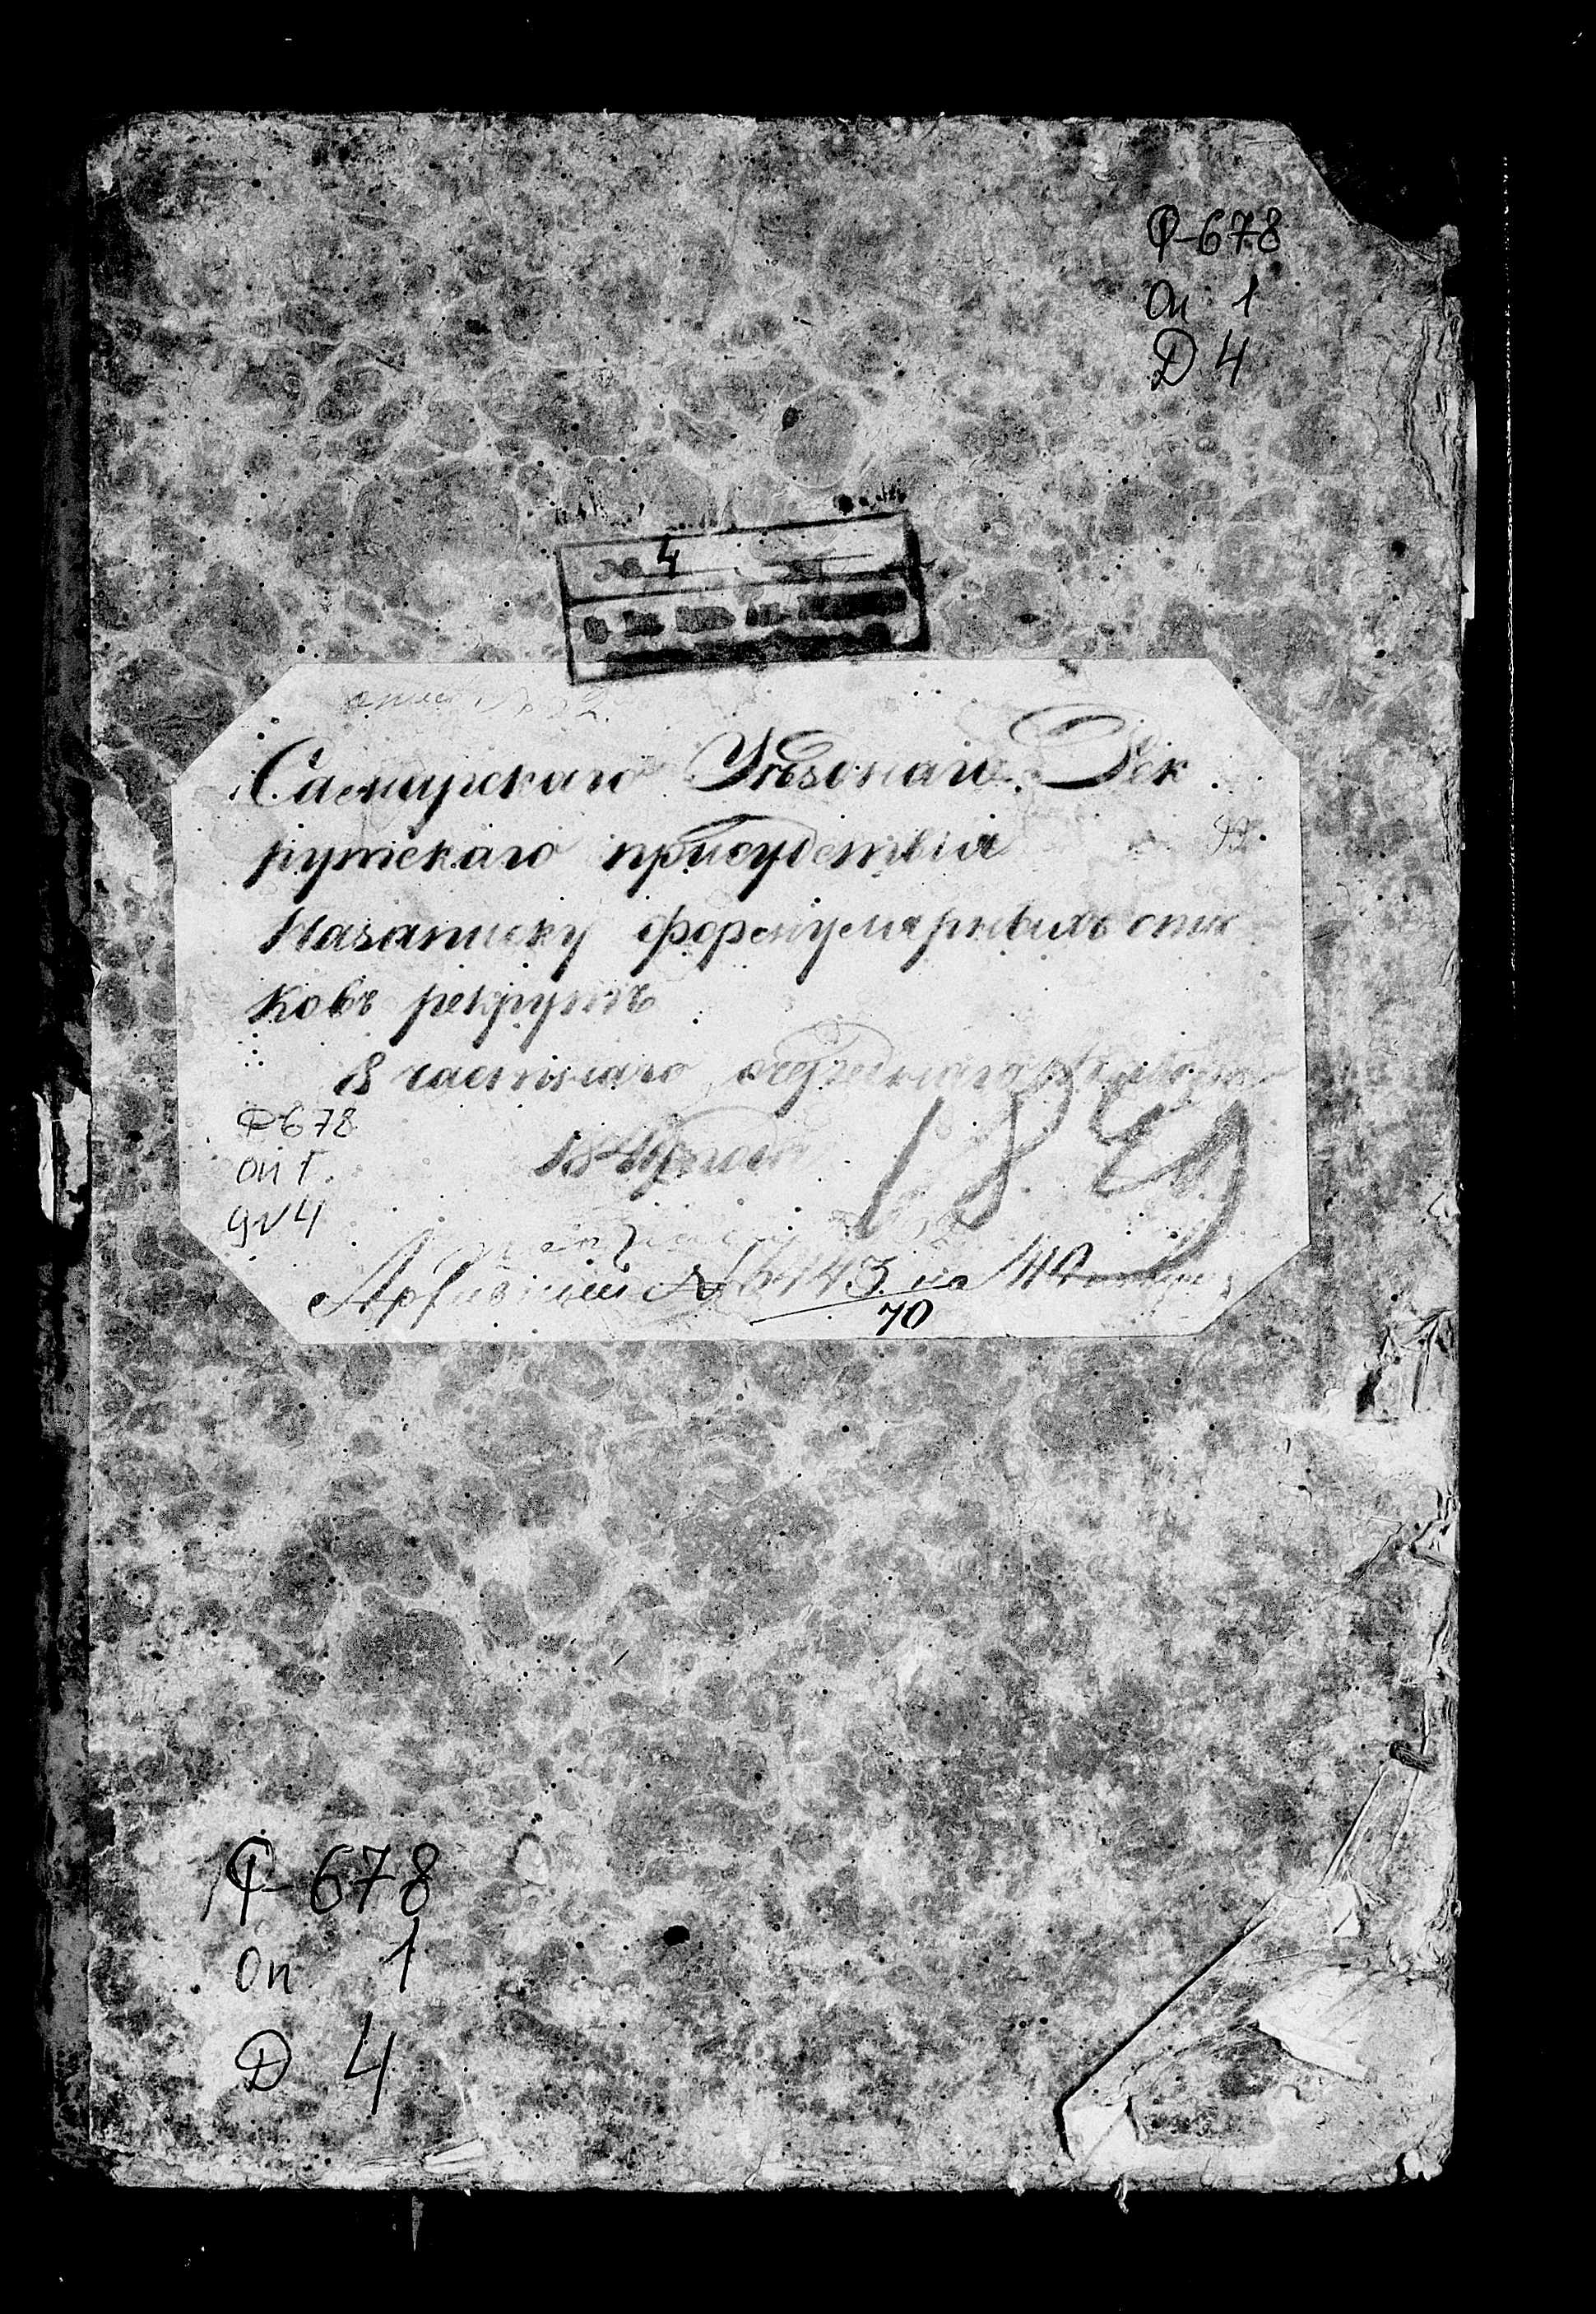 Ф-678
Оп 1
Д 4
№ 4
Самарскаго Уѣзднаго Рек
рутскаго присутствія
На записку формулярныхъ спи
ковъ рекрутъ
8 частнаго очереднаго набора
1849 года
184
Ф678
оп 1.
Архивный № 6443 на
70
Ф-678
Оп 1
Д 4